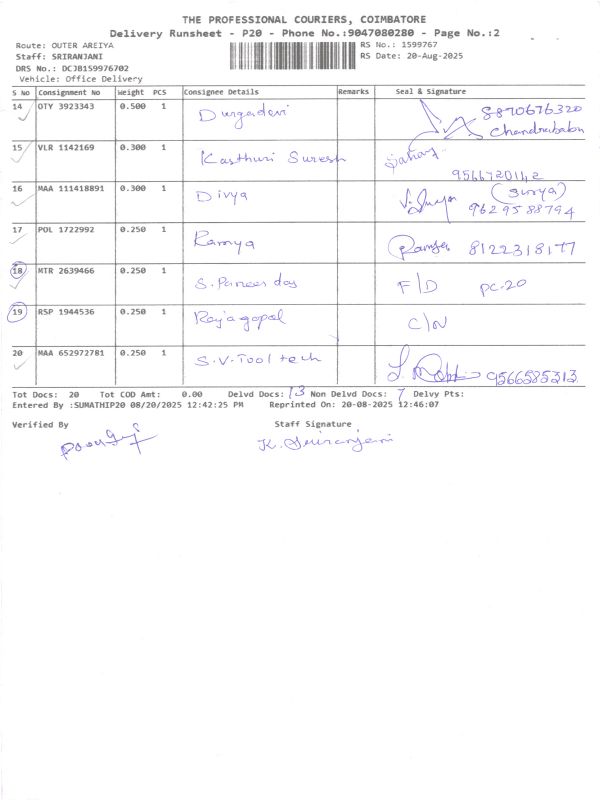 THE PROFESSIONAL COURIERS, COIMBATORE
Delivery Runsheet - P20 - Phone No.:9047080280 - Page No.:2
Route: OUTER AREIYA RS No.: 1599767
Staff: SRIRANJANI RS Date: 20-Aug-2025
DRS No.: DCJB1S9976702
Vehicle: Office Delivery
S No Consignment No Weight PCS Consignee Details Remarks Seal & Signature
14 OTY 3923343 0.500 1 Durgadevi 8870676320
Chandrababu
15 VLR 1142169 0.300 1 Kasthuri Suresh
9566720142
16 MAA 111418891 0.300 1 Divya (Surya)
9629588794
17 POL 1722992 0.250 1 Ramya Ramya 8122318177
18 MTR 2639466 0.250 1 F/D PC-20
19 RSP 1944536 0.250 1 Rajagopal C/N
20 MAA 652972781 0.250 1 S.V.Tool tech 9566585313
Tot Docs: 20 Tot COD Amt: 0.00 Delvd Docs: 13 Non Delvd Docs: 7 Delvy Pts:
Entered By :SUMATHIP20 08/20/2025 12:42:25 PM Reprinted On: 20-08-2025 12:46:07
Verified By Staff Signature
K. Sriranjani